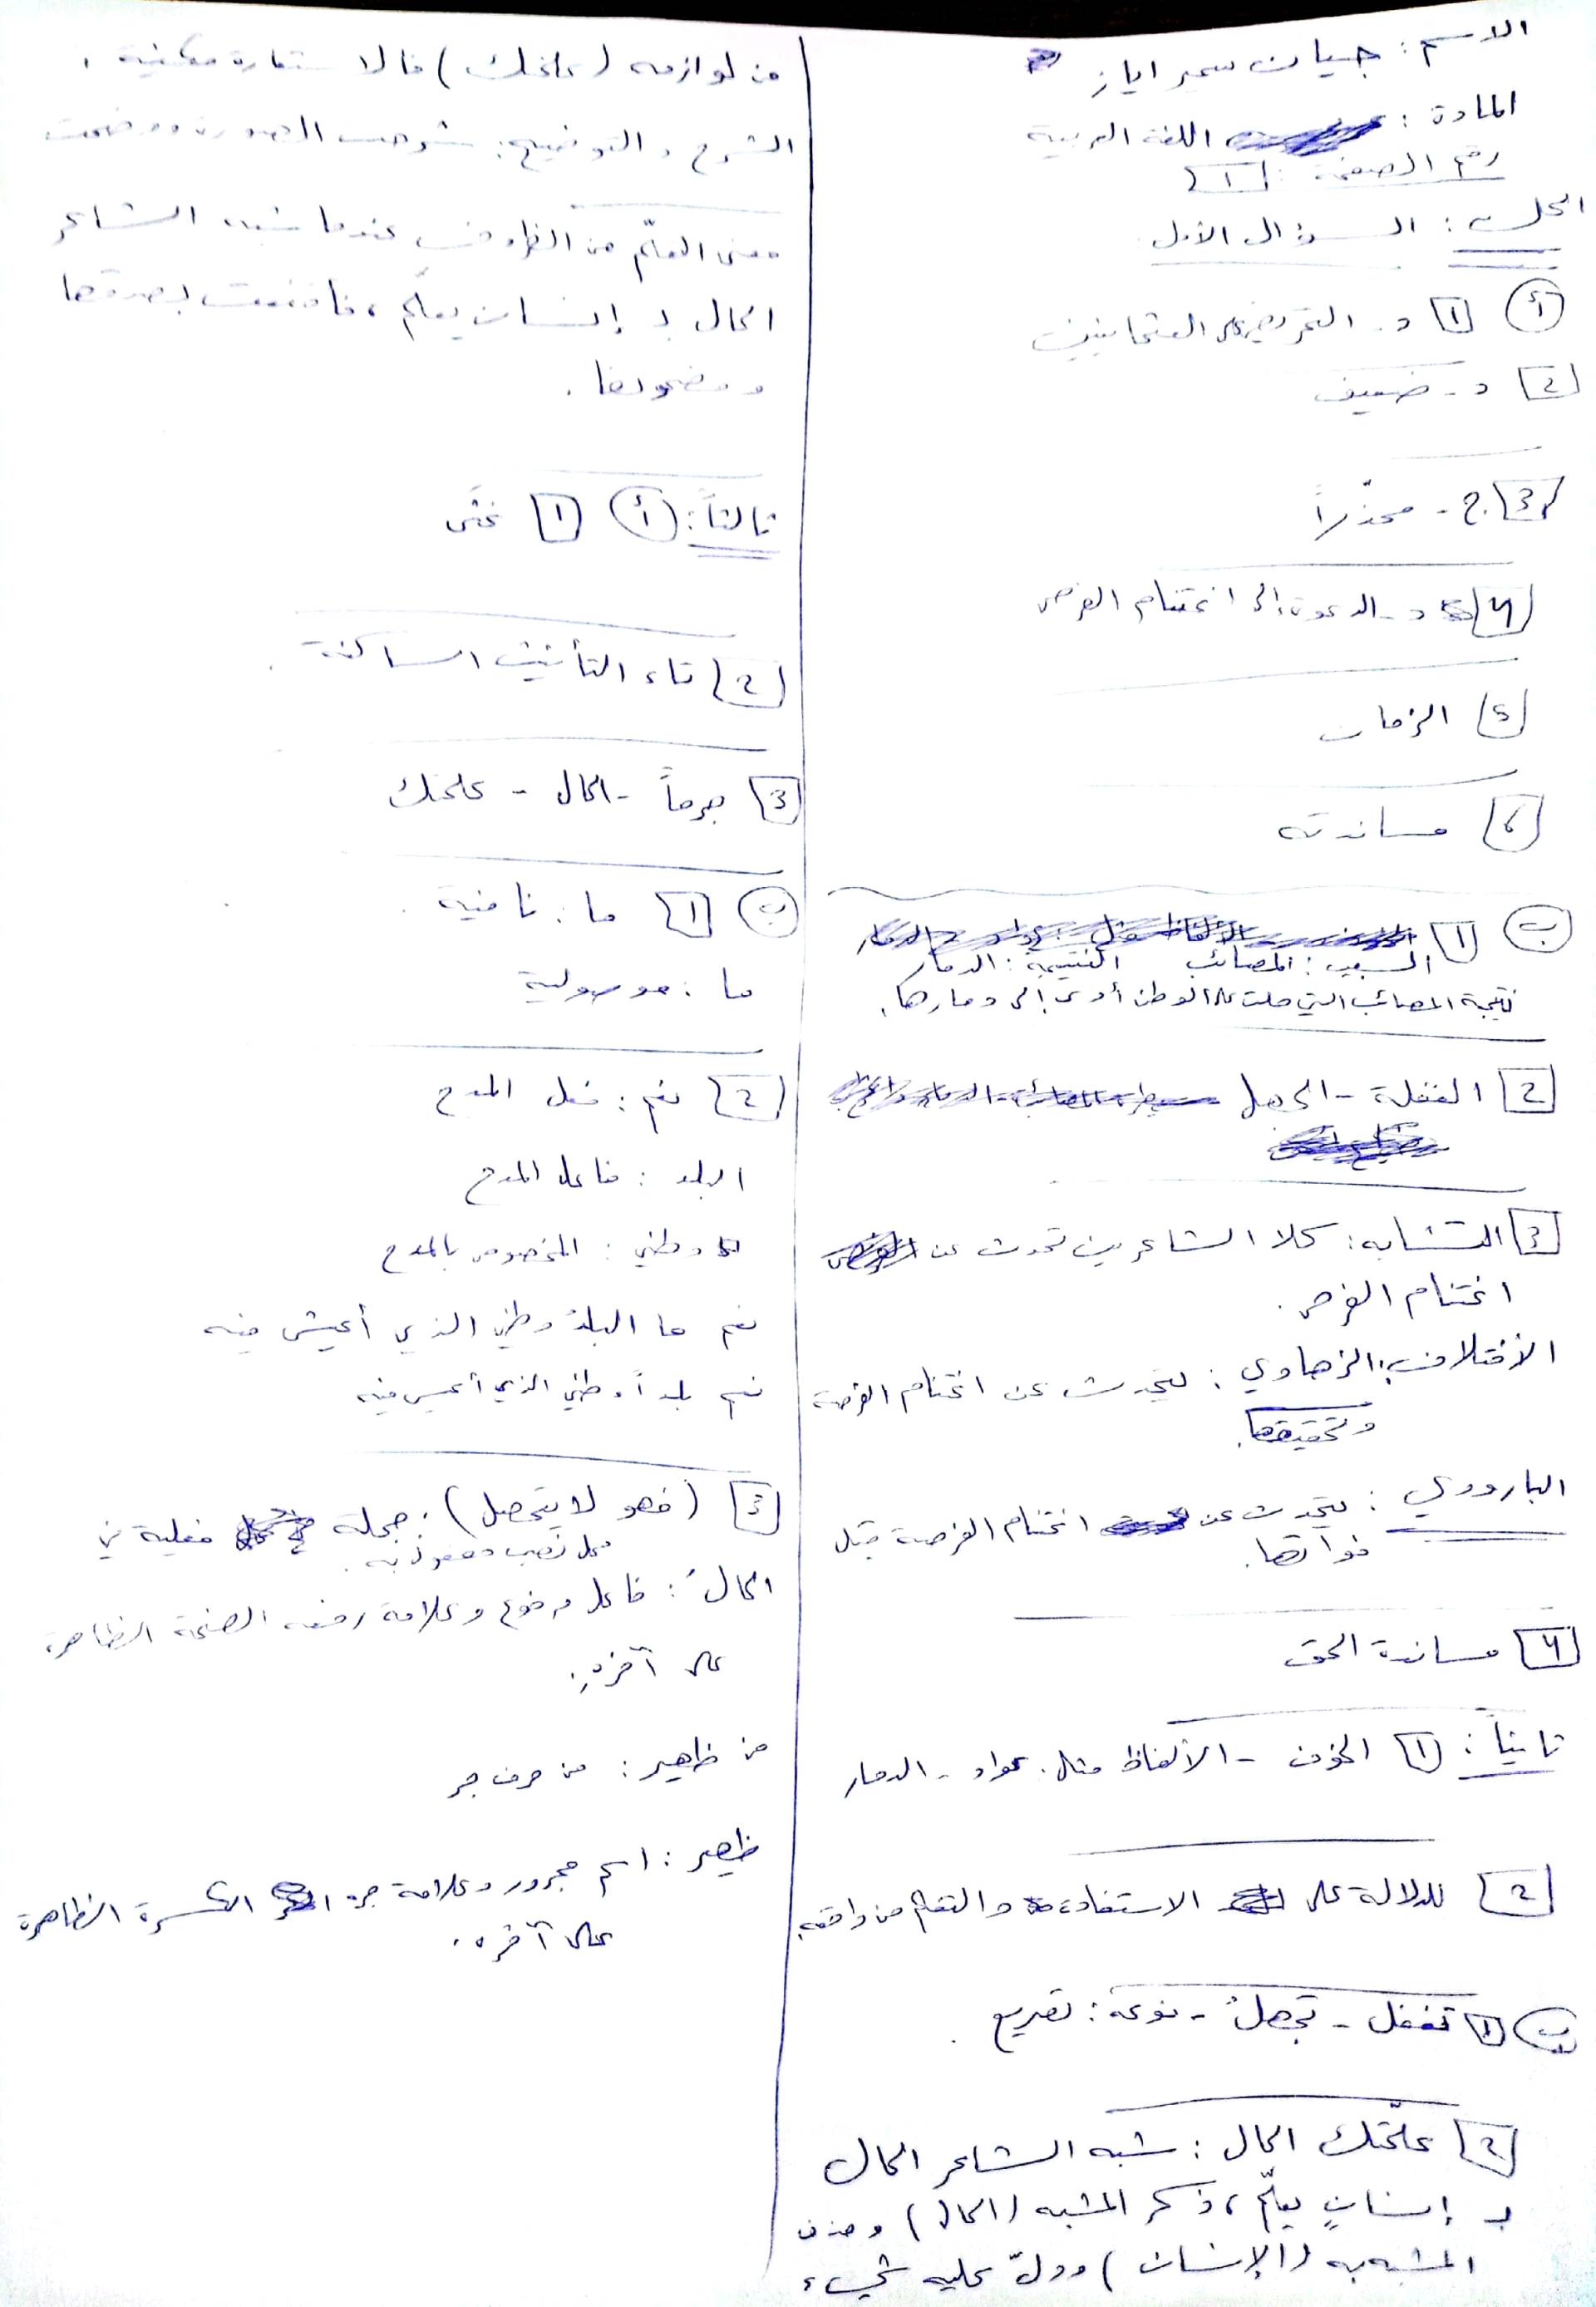 الاسم: جيان سمير اياز
المادة: اللغة العربية
رقم الصفحة: 1
الحل: السؤال الأول
أ 1 د. التحريض على العثمانيين
2 د- ضعيف
3 ج- محذّراً
4 د- الدعوة إلى اغتنام الفرص
5 الزمان
6 مساندته
ب 1
السبب: المصائب النتيجة: الدمار
نتيجة المصائب التي حلت على الوطن أدى إلى دمارها.
2 الغفلة - الجهل
3 التشابه: كلا الشاعرين تحدث عن
اغتنام الفرص.
الاختلاف: الزهاوي: يتحدث عن اغتنام الفرصة
وتحقيقها.
البارودي: يتحدث عن اغتنام الفرصة قبل
فواتها.
4 مساندة الحق
ثانياً: 1 الخوف - الألفاظ مثل: عواد - الدمار
2 للدلالة على الاستفادة والتعلم من واقعه.
ب 1 تغفل - تجهلُ - نوعه: تصريع.
2 علّمتك الحال: شبه الشاعر الحال
بـ إنسانٍ يعلّم، ذكر المشبه (الحال) وحذف
المشبه به (الإنسان) ودلّ عليه شيء
من لوازمه (علمتك) فالاستعارة مكنية.
الشرح والتوضيح: شرحت الصورة ووضحت
معنى التعلّم من الظروف عندما شبه الشاعر
الحال بـ إنسان يعلّم، فاقنعت بصدقها
ومضمونها.
ثالثاً: أ 1 حتّى
2 تاء التأنيث الساكنة.
3 يوماً - الحال - علمتك
ب 1 ما: نافية.
ما: موصولية
2 نعم: فعل المدح
البلد: فاعل المدح
وطني: المخصوص بالمدح
نعم ما البلدُ وطني الذي أعيش فيه
نعم بلداً وطني الذي أعيش فيه
3 (فهو لا يتحصل): جملة فعلية في
محل نصب مفعول به.
الحالُ: فاعل مرفوع وعلامة رفعه الضمة الظاهرة
على آخره.
من ظهير: من حرف جر
ظهير: اسم مجرور وعلامة جره الكسرة الظاهرة
على آخره.